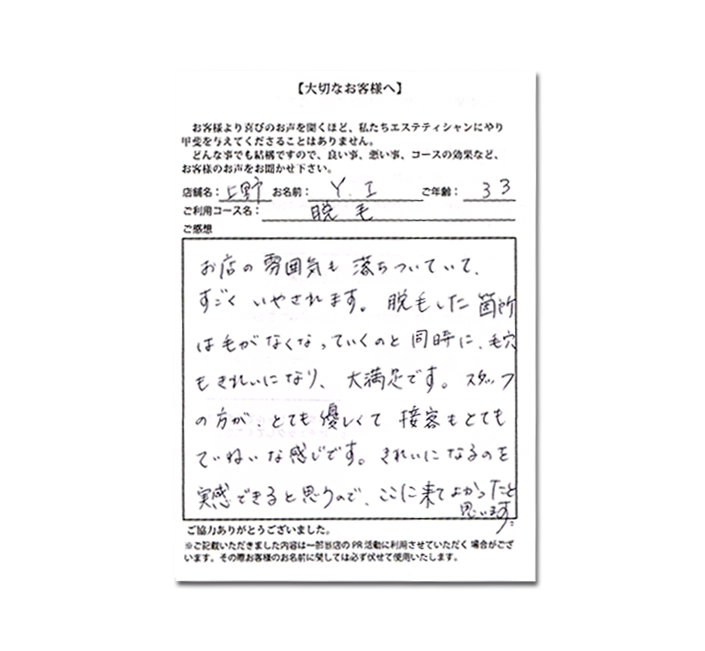 【大切なお客様へ】
お客様より喜びのお声を聞くほど、私たちエステティシャンにやり
甲斐を与えてくださることはありません。
どんな事でも結構ですので、良い事、悪い事、コースの効果など、
お客様のお声をお聞かせ下さい。
店舗名：上野 お名前：Y.I ご年齢：33
ご利用コース名：脱毛
ご感想
お店の雰囲気も落ちついていて、
すごくいやされます。脱毛した箇所
は毛がなくなっていくのと同時に、毛穴
もきれいになり、大満足です。スタッフ
の方が、とても優しくて接客もとても
ていねいな感じです。きれいになるのを
実感できると思うので、ここに来てよかったと
思います。
ご協力ありがとうございました。
※ご記載いただきました内容は一部当店のPR活動に利用させていただく場合がござ
います。その際お客様のお名前に関しては必ず伏せて使用いたします。